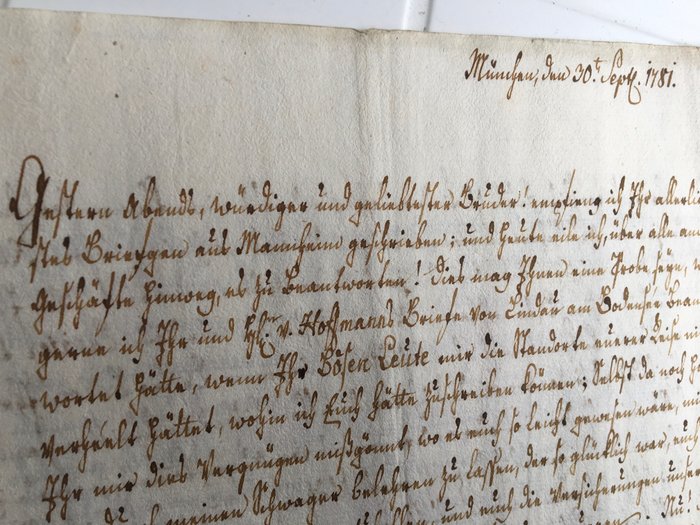 München, den 30t. Sept. 1781.
Gestern Abends, würdiger und geliebtester Bruder! empfieng ich Ihr allerlieb
stes Briefgen aus Mannheim geschrieben; und heute eile ich, über alle an
Geschäfte hinweg, es zu beantworten! dies mag Ihnen eine Probe seyn, w
gerne ich Ihr und H. v. Hoffmanns Briefe von Lindau am Bodensee bean
wortet hätte, wenn Ihr bösen Leute mir die Standorte eurer Reise ni
verheelt hättet, wohin ich Euch hätte zuschreiben können; Selbst da noch ha
Ihr mir dies Vergnügen mißgönnt, wo es euch so leicht gewesen wäre, mi
meinen Schwager belehren zu lassen, der so glücklich war, euch
und euch die Versicherungen unser